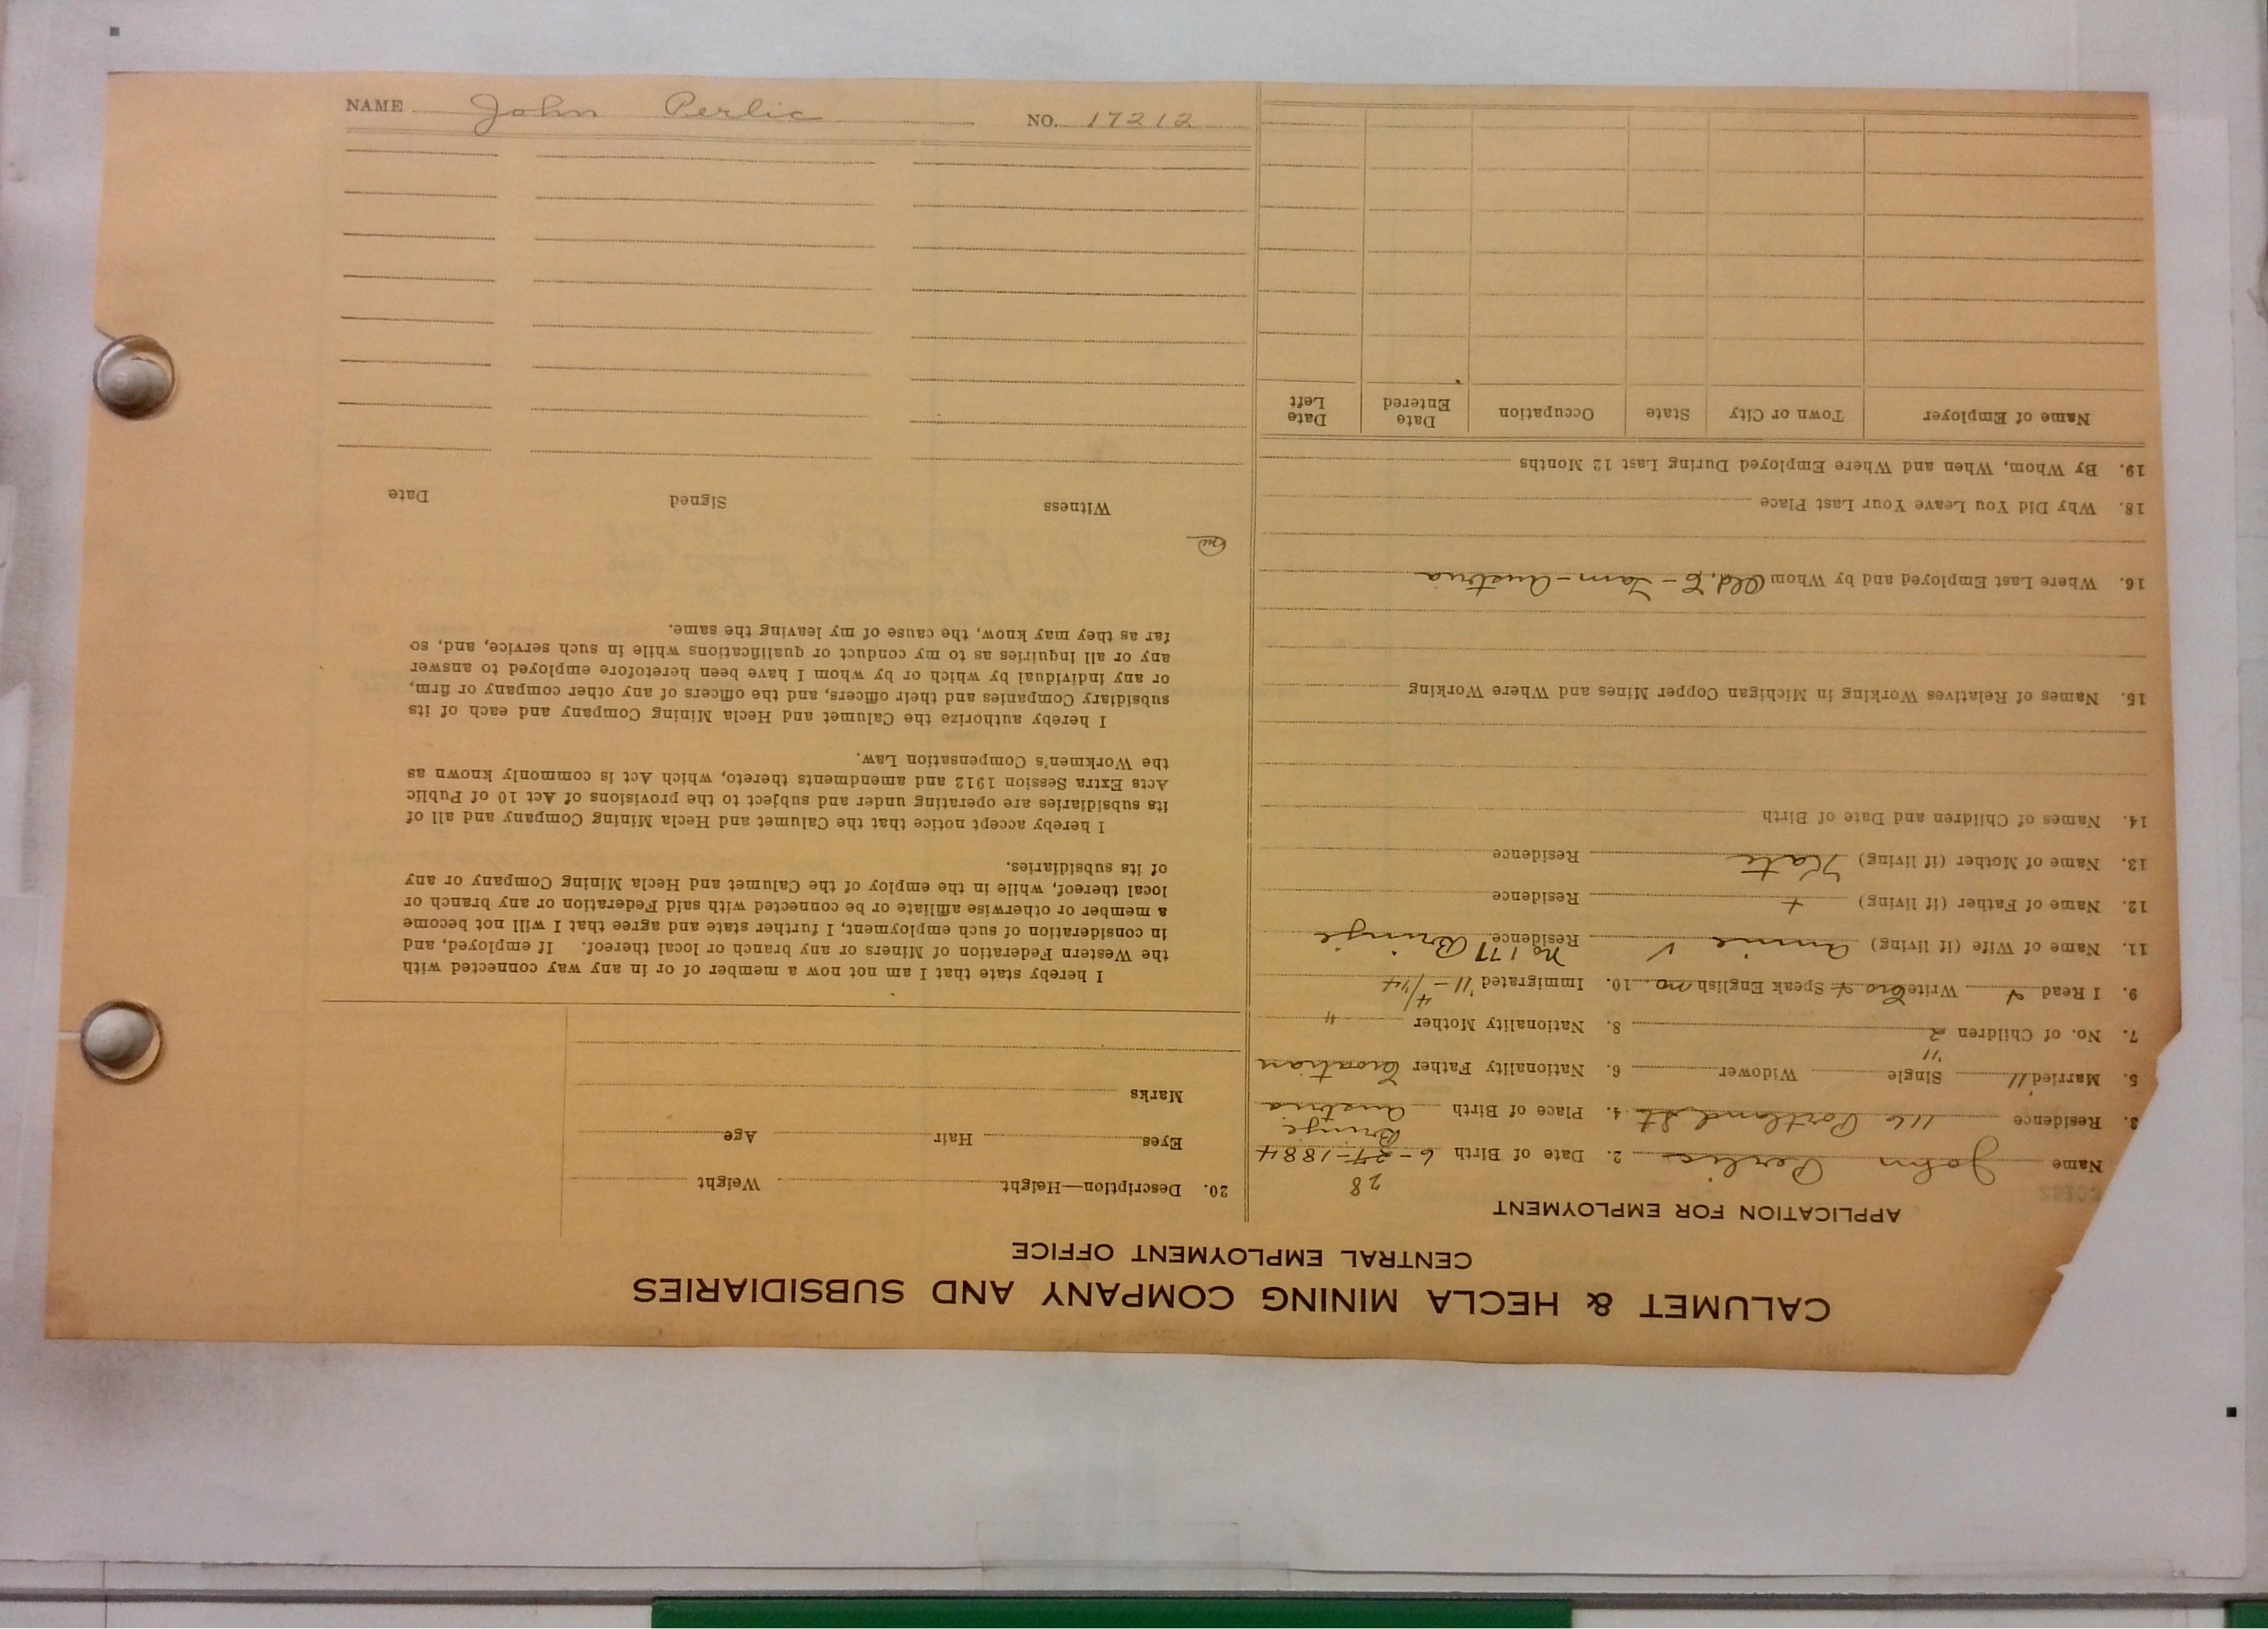 NAME John Perlic NO. 17212
CALUMET & HECLA MINING COMPANY AND SUBSIDIARIES
CENTRAL EMPLOYMENT OFFICE
APPLICATION FOR EMPLOYMENT
28
Name John Perlic 2. Date of Birth 6-24-1884
Bringe
3. Residence 116 Portland St. 4. Place of Birth Austria
5. Married 11 Single Widower 6. Nationality Father Croatian
"11
7. No. of Children 2 8. Nationality Mother "
4/14
9. I Read + Write Cro + Speak English no 10. Immigrated '11 -
No 177 Bringe
11. Name of Wife (if living) Annie V Residence
12. Name of Father (if living) + Residence
13. Name of Mother (if living) Kate Residence
14. Names of Children and Date of Birth
15. Names of Relatives Working in Michigan Copper Mines and Where Working
16. Where Last Employed and by Whom Old. C - Farm - Austria
18. Why Did You Leave Your Last Place
19. By Whom, When and Where Employed During Last 12 Months
Name of Employer Town or City State Occupation Date Entered Date Left
20. Description—Height Weight
Eyes Hair Age
Marks
I hereby state that I am not now a member of or in any way connected with
the Western Federation of Miners or any branch or local thereof. If employed, and
in consideration of such employment, I further state and agree that I will not become
a member or otherwise affiliate or be connected with said Federation or any branch or
local thereof, while in the employ of the Calumet and Hecla Mining Company or any
of its subsidiaries.
I hereby accept notice that the Calumet and Hecla Mining Company and all of
its subsidiaries are operating under and subject to the provisions of Act 10 of Public
Acts Extra Session 1912 and amendments thereto, which Act is commonly known as
the Workmen's Compensation Law.
I hereby authorize the Calumet and Hecla Mining Company and each of its
subsidiary Companies and their officers, and the officers of any other company or firm,
or any individual by which or by whom I have been heretofore employed to answer
any or all inquiries as to my conduct or qualifications while in such service, and, so
far as they may know, the cause of my leaving the same.
Witness Signed Date